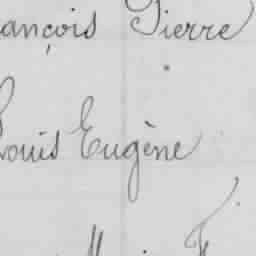 ançois Pierre
Louis Eugène